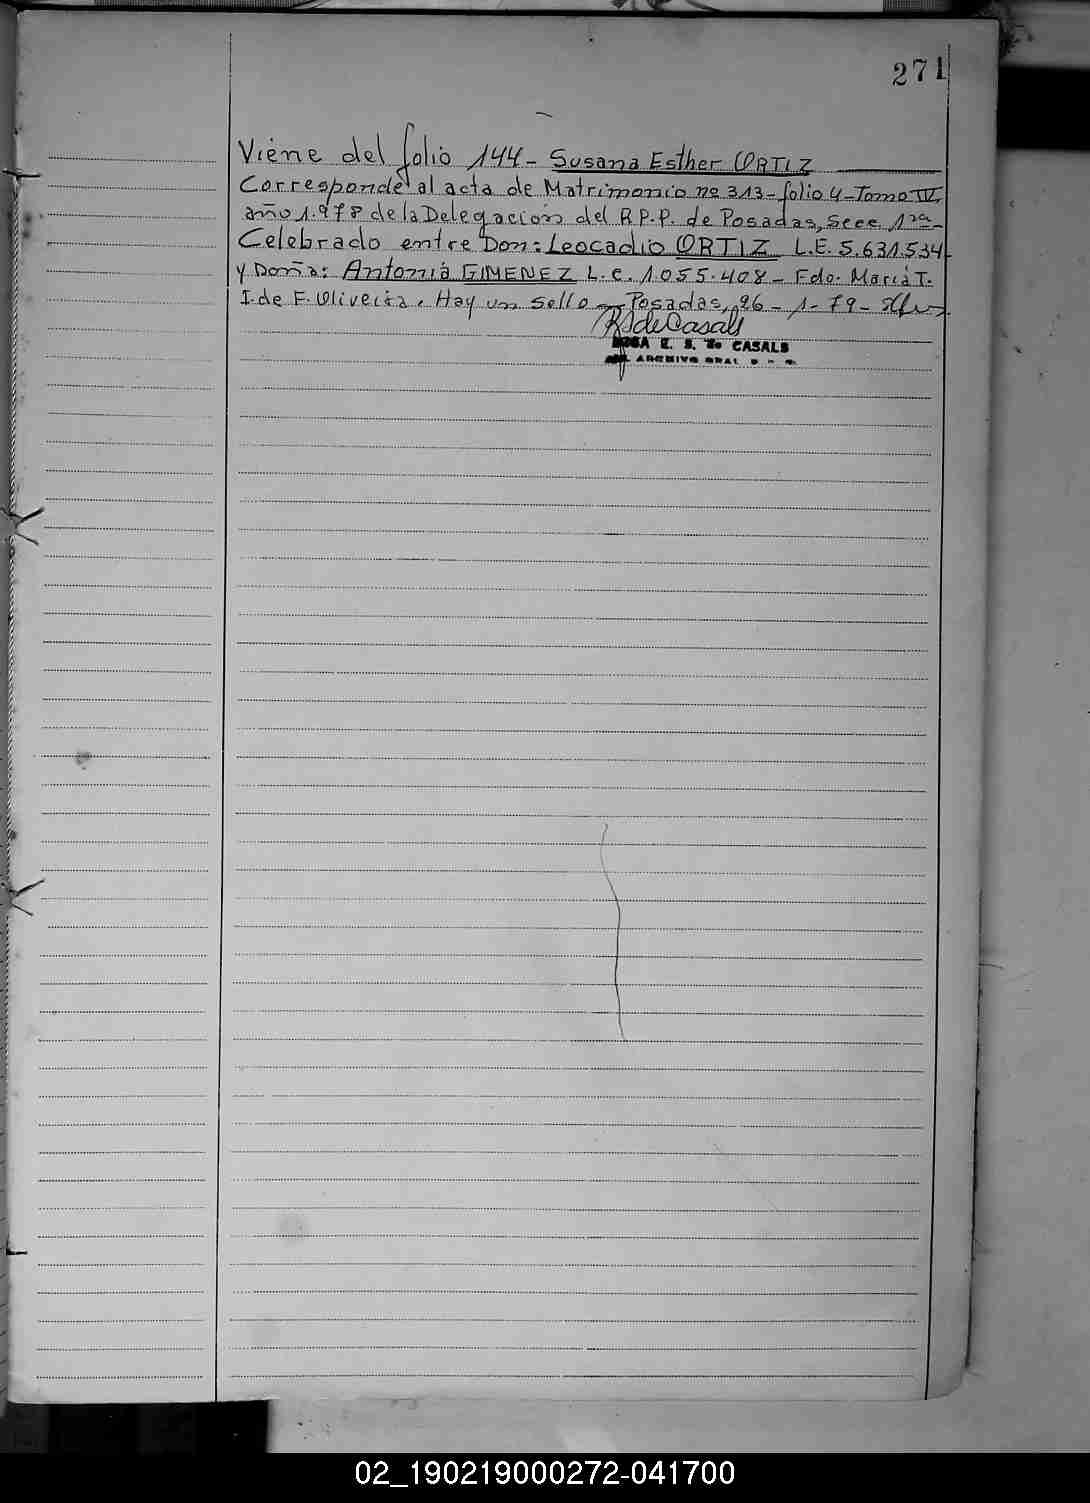 271
Viene del folio 144 - Susana Esther ORTIZ
Corresponde al acta de Matrimonio nº 313 - folio 4 - Tomo IV,
año 1.978 de la Delegación del R.P.P. de Posadas, Secc. 1ra -
Celebrado entre Don: Leocadio ORTIZ L.E. 5.631.534
y Doña: Antonia GIMENEZ L.C. 1.055.408 - Fdo. María T.
I. de F. Oliveira. Hay un sello - Posadas, 26 - 1 - 79 -
RSdeCasals
ROSA E. S. de CASALS
ARCHIVO GRAL
02_190219000272-041700